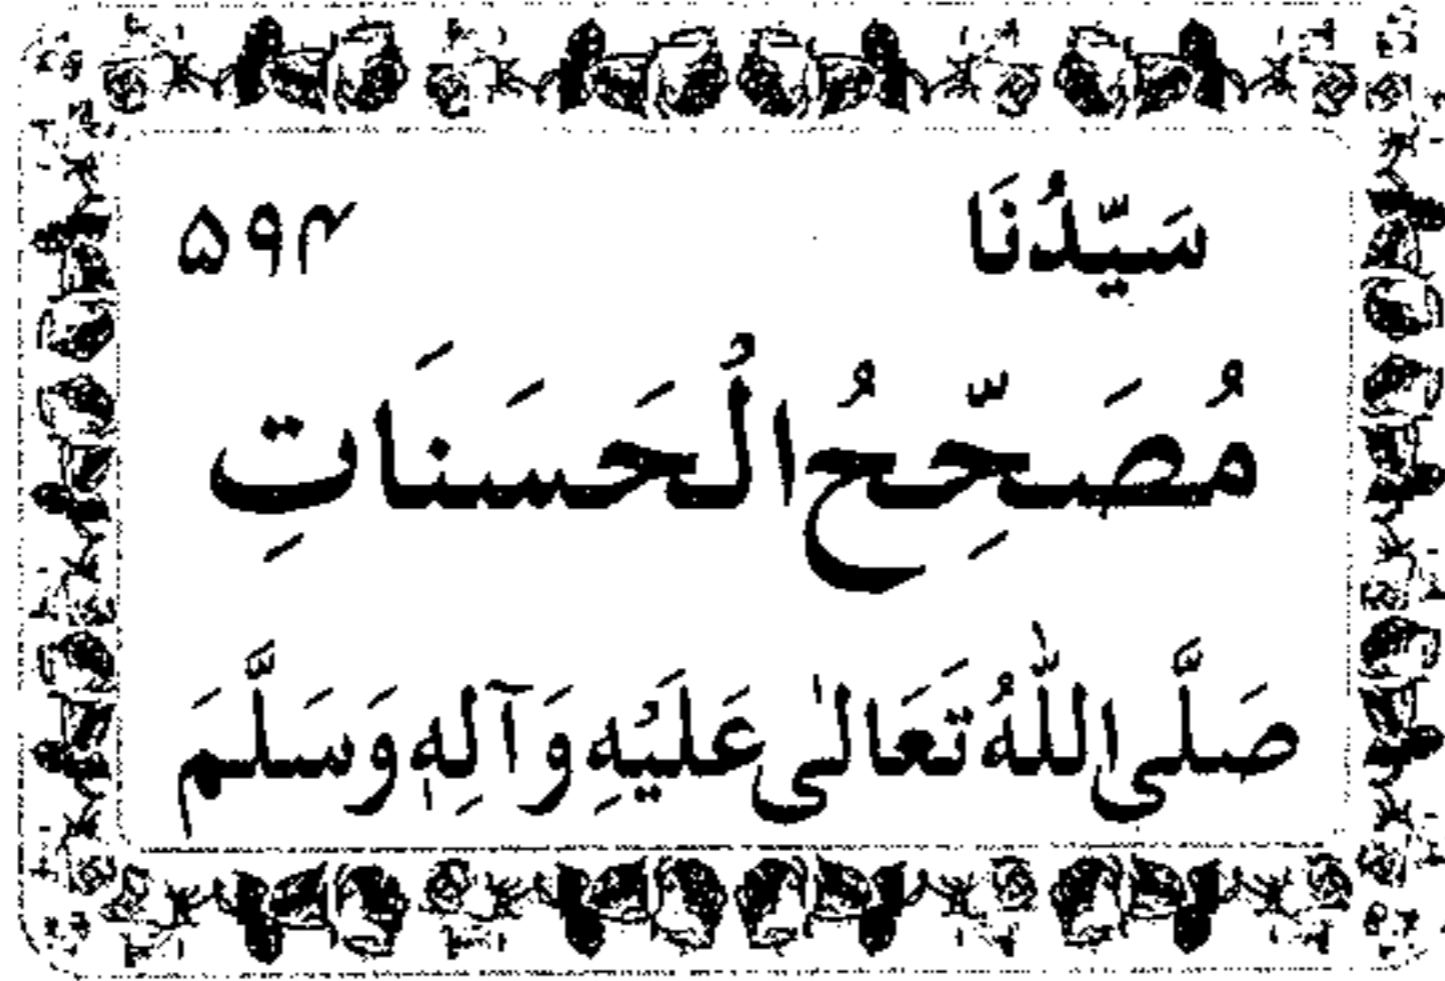 سَيِّدُنَا ۵۹۳
مُصَحِّحُ الْحَسَنَاتِ
صَلَّى اللّٰهُ تَعَالٰى عَلَيْهِ وَآلِهٖ وَسَلَّمَ